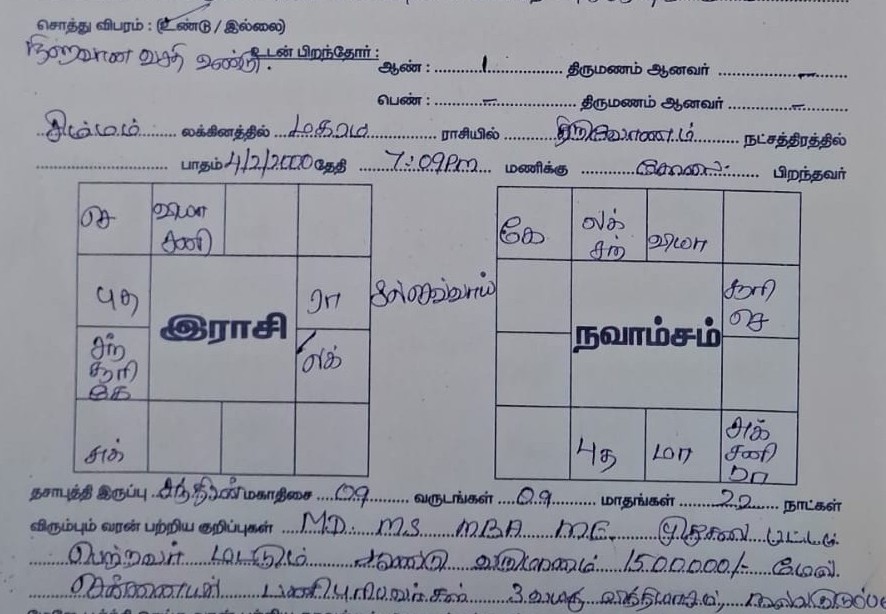 சொத்து விபரம் : (உண்டு / இல்லை)
நிறைவான வசதி உண்டு. உடன் பிறந்தோர் :
ஆண் : 1 திருமணம் ஆனவர் –
பெண் : – திருமணம் ஆனவர் –
சிம்மம் லக்கினத்தில் மகரம் ராசியில் திருவோணம் நட்சத்திரத்தில்
பாதம் 4/2/2000 தேதி 7:09 Pm மணிக்கு பிறந்தவர்
செ
வியா
சனி
புத
இராசி
ரா
சுத்
சூரி
கே
லக்
சுக்
கே
லக்
சந்
வியா
நவாம்சம்
சூரி
செ
புத
மா
சுக்
சனி
ரா
தசாபுத்தி இருப்பு சந்திரன் மகாதிசை 09 வருடங்கள் 09 மாதங்கள் 22 நாட்கள்
விரும்பும் வரன் பற்றிய குறிப்புகள் MD. MS MBA ME. முதுகலை பட்டம்
பெற்றவர் மட்டும் ஆண்டு வருமானம் 1500000/- மேல்.
சென்னையில் பணிபுரிபவர்கள்